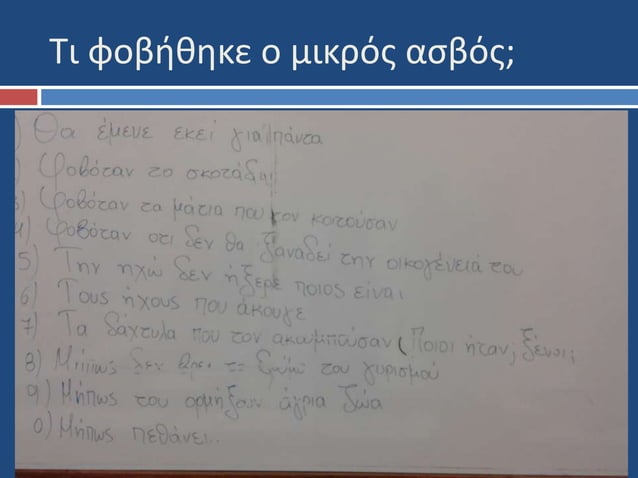 Τι φοβήθηκε ο μικρός ασβός;
) Θα έμενε εκεί για πάντα
) Φοβόταν το σκοτάδι
3) Φοβόταν τα μάτια που τον κοιτούσαν
4) Φοβόταν οτι δεν θα ξαναδεί την οικογένειά του
5) Την ηχώ δεν ήξερε ποιος είναι
6) Τους ήχους που άκουγε
7) Τα δάχτυλα που τον ακωμπούσαν (Ποιοι ήταν; ξένοι;
8) Μήπως δεν βρει το δρόμο του γυρισμού
9) Μήπως του ορμήξουν άγρια ζώα
0) Μήπως πεθάνει..